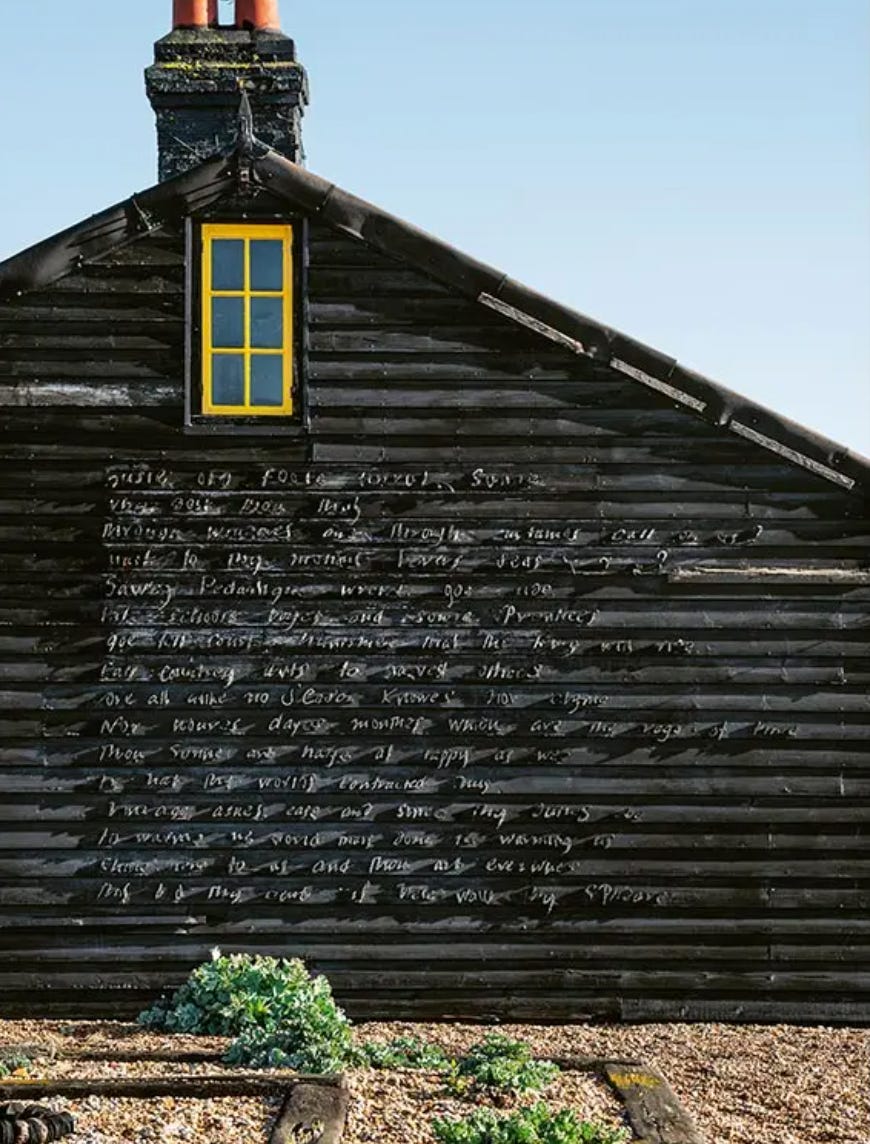 Busie old foole unruly Sunne
Why dost thou thus
Through windowes and through curtaines call on us?
Must to thy motions lovers seasons run?
Sawcy Pedantique wretch goe
schoole boyes and sowre Prentices
goe tell Court Huntsmen that the King will ride
Call countrey ants to harvest offices
love all alike no Season knowes nor clyme
Nor houres dayes months which are the rags of time
Thou Sunne are halfe as happy as we
In that the world's contracted thus
Thine age askes ease and since thy duties be
To warme the world that's done in warming us
Shine here to us and thou art everywhere
This bed thy center is these walls thy Spheare